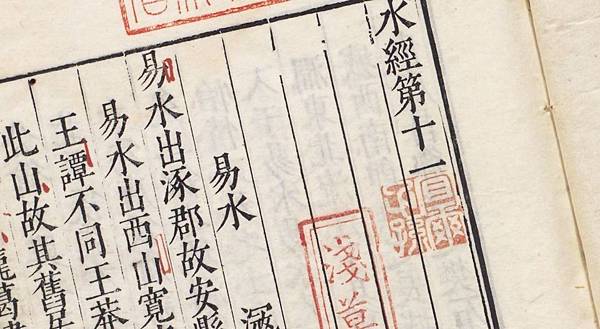 水經第十一
易水
易水出涿郡故安縣
易水出西山寬
王譚不同王莽
此山故其舊
淺草